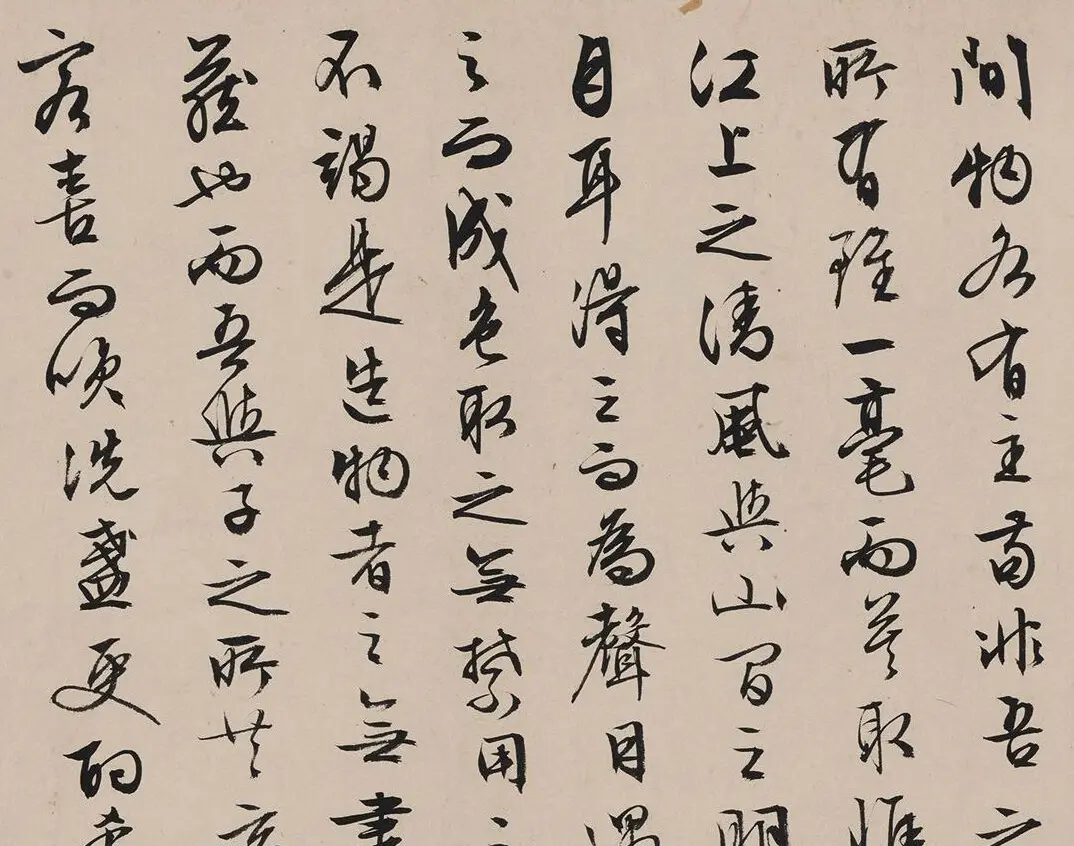 間物各有主苟非吾之
所有雖一毫而莫取惟
江上之清風與山間之明
月耳得之而為聲目遇
之而成色取之無禁用之
不竭是造物者之無盡
藏也而吾與子之所共
客喜而咲洗盞更酌肴